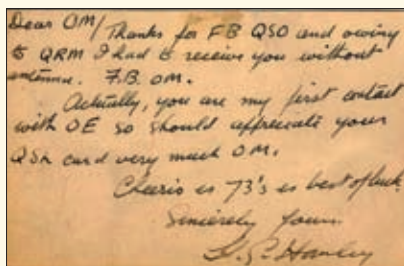 Dear OM/Thanks for FB QSO and owing
to QRM I had to receive you without
antenna. F.B. OM.
Actually, you are my first contact
with OE so should appreciate your
QSL card very much OM.
Cheerio es 73's es best of luck.
Sincerely yours
Hanley